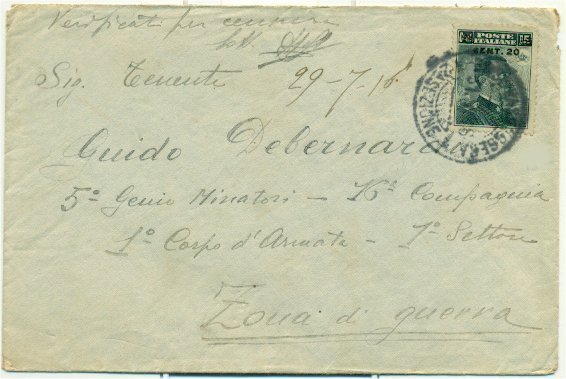 Verificato per censura
Sig. Tenente 29-7-16
Guido Debernardi
5º Genio Minatori - 16ª Compagnia
1º Corpo d'Armata - 1º Settore
Zona di guerra
POSTE
ITALIANE
15
CENT. 20